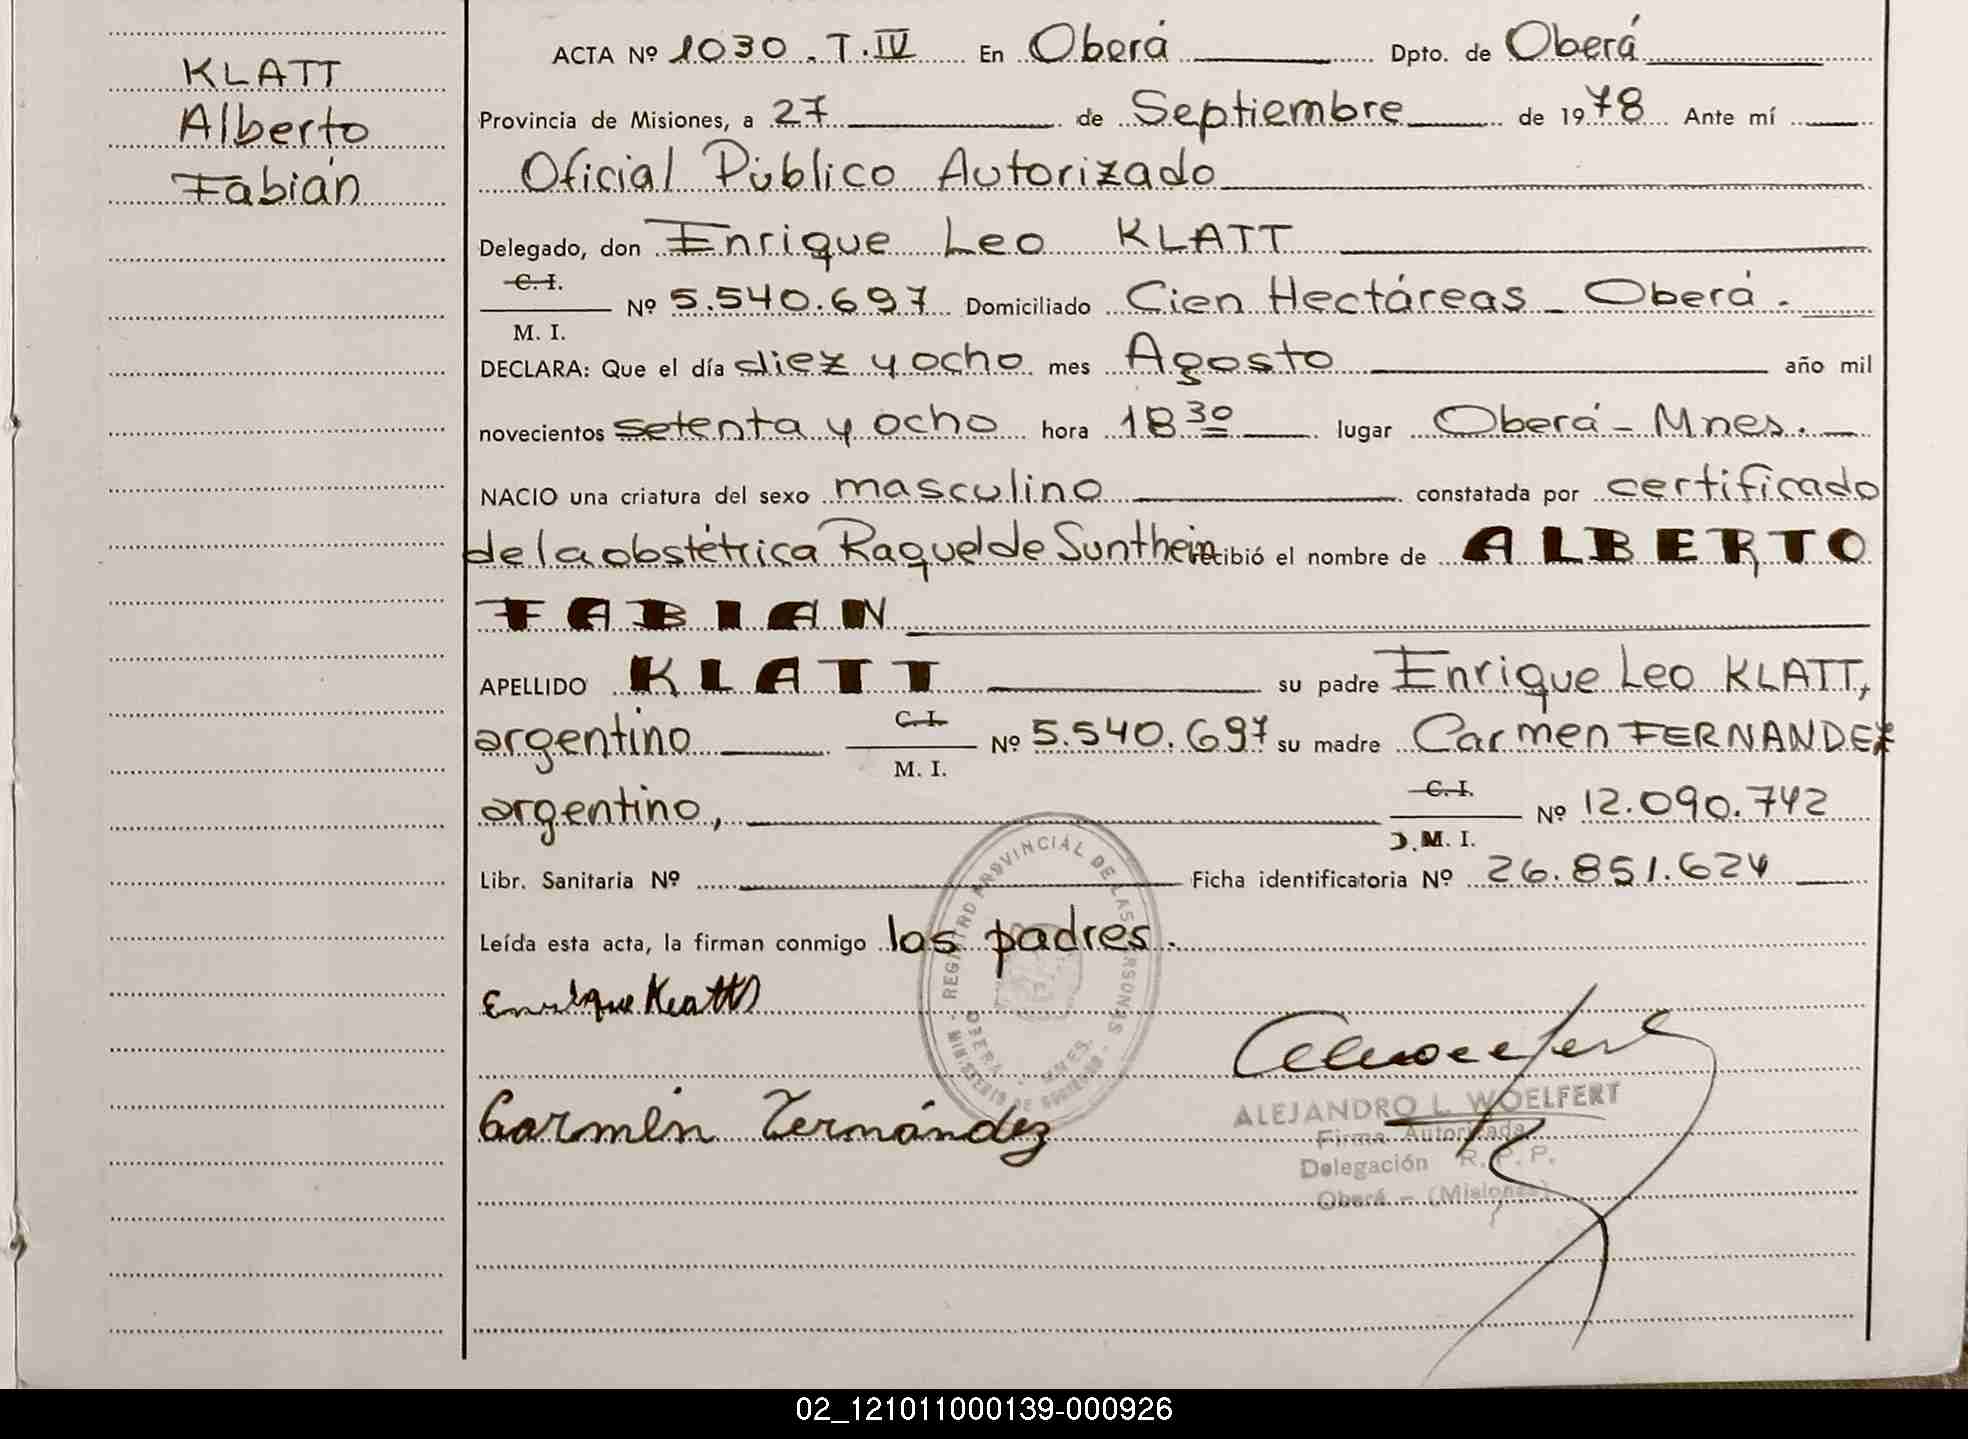 KLATT
Alberto
Fabián
ACTA Nº 1030. T.IV En Oberá Dpto. de Oberá
Provincia de Misiones, a 27 de Septiembre de 1978 Ante mí
Oficial Público Autorizado
Delegado, don Enrique Leo KLATT
C. I.
M. I.
Nº 5.540.697 Domiciliado Cien Hectáreas - Oberá.
DECLARA: Que el día diez y ocho mes Agosto año mil
novecientos setenta y ocho hora 18 30 lugar Oberá - Mnes.
NACIO una criatura del sexo masculino constatada por certificado
de la obstétrica Raquel de Sunthein recibió el nombre de ALBERTO
FABIAN
APELLIDO KLATT su padre Enrique Leo KLATT,
argentino C. I. M. I. Nº 5.540.697 su madre Carmen FERNANDEZ
argentino, C. I. D. M. I. Nº 12.090.742
Libr. Sanitaria Nº Ficha identificatoria Nº 26.851.624
Leída esta acta, la firman conmigo los padres.
Enrique Klatt
Carmen Fernández
REGISTRO PROVINCIAL DE LAS PERSONAS - MINISTERIO DE GOBIERNO -
OBERA - MNES.
ALEJANDRO L. WOELFERT
Firma Autorizada
Delegación R. P. P.
Oberá - (Misiones)
02_121011000139-000926